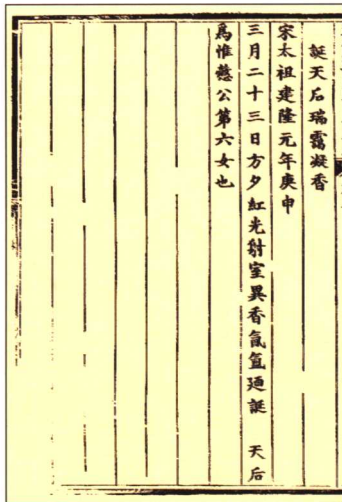 誕天后瑞靄凝香
宋太祖建隆元年庚申
三月二十三日方夕紅光射室異香氤氳廼誕 天后
為惟慤公第六女也